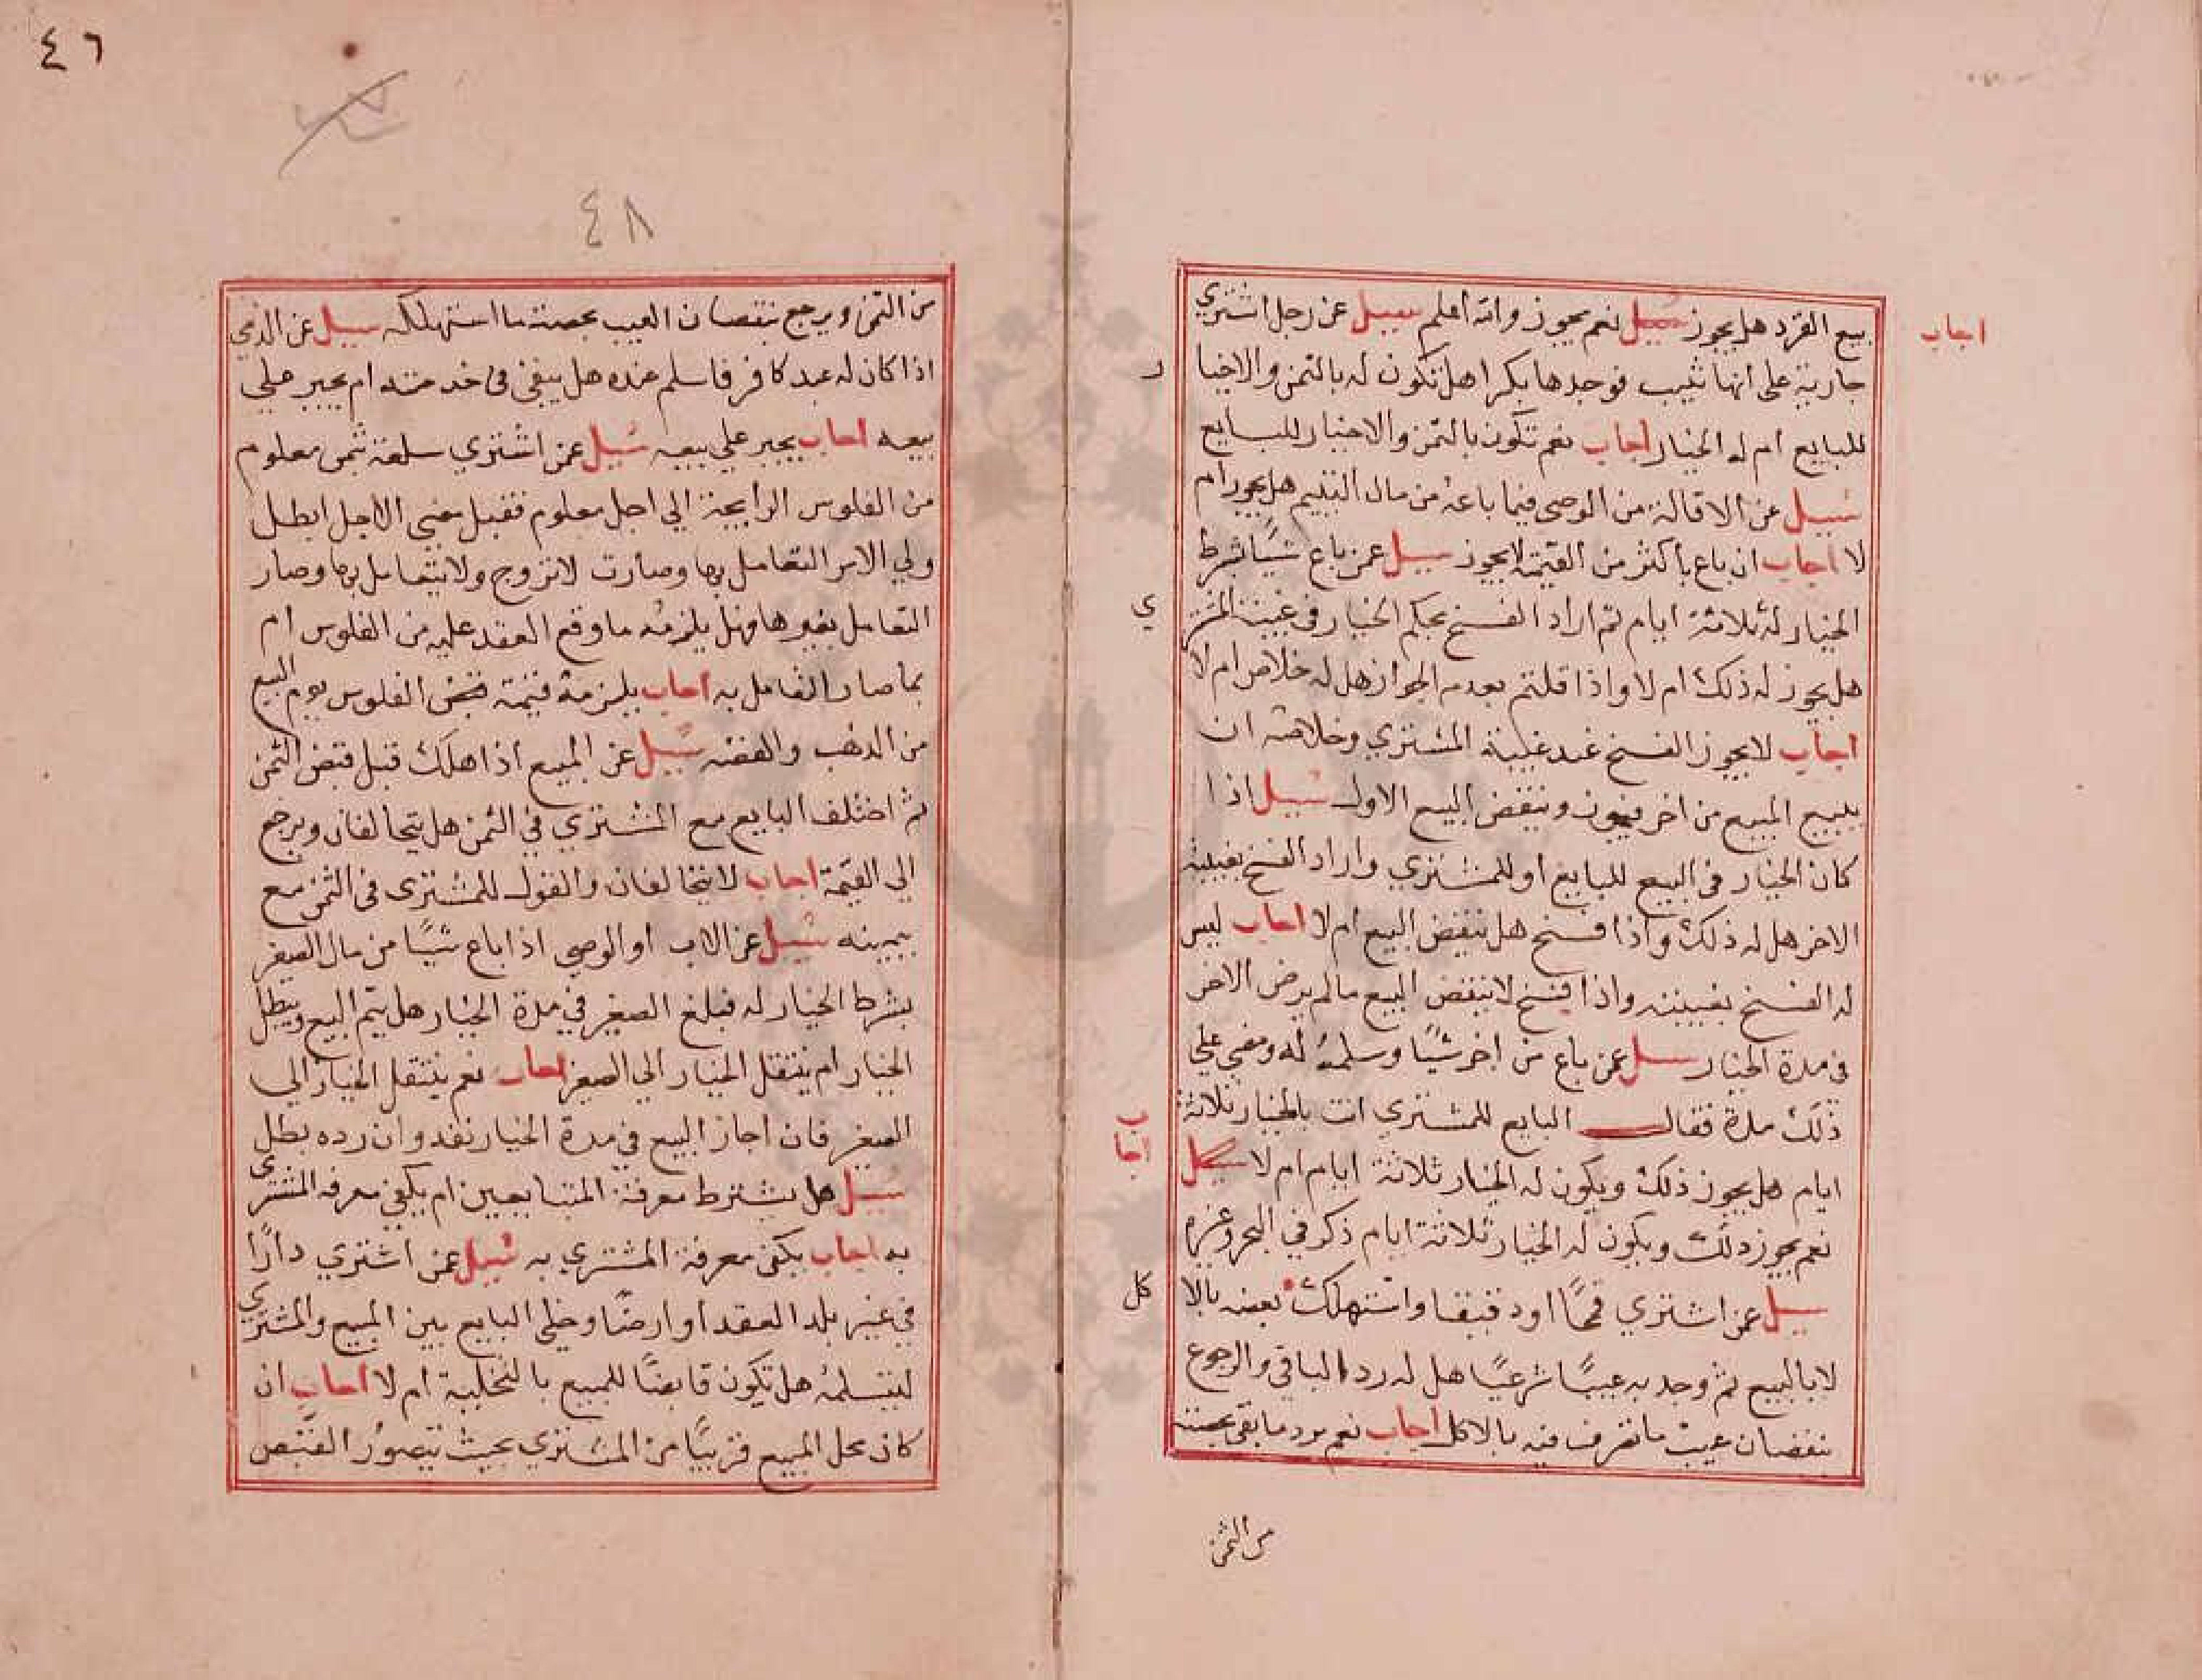 بيع القرد هل يجوز سيل نعم يجوز والله اعلم سيل عن رجل اشتري
اجاب
جارية على انها ثيب فوجدها بكرا هل تكون له بالثمن والاخيا
ر
للبايع ام له الخيار اجاب نعم تكون بالثمن والاخيار للبايع
سيل عن الاقالة من الوصي فيما باعه من مال اليتيم هل يجوز ام
لا اجاب ان باع باكثر من القيمة لا يجوز سيل عمن باع شيًا بشرط
الخيار له ثلاثة ايام ثم اراد الفسخ بحكم الخيار في غيبة المشتر
ي
هل يجوز له ذلك ام لا واذا قلتم بعدم الجواز هل له خلاص ام لا
اجاب لا يجوز الفسخ عند غيبة المشتري وخلاصه ان
يبيع المبيع من اخر وينقض البيع الاول سيل اذا
كان الخيار في البيع للبايع او للمشتري واراد الفسخ بغيبة
الاخر هل له ذلك واذا فسخ هل ينقض البيع ام لا اجاب ليس
له الفسخ بغيبته واذا فسخ لا ينقض البيع ما لم يرض الاخر
في مدة الخيار سيل عمن باع من اخر شيًا وسلمه له ومضي علي
ذلك مدة فقال البايع للمشتري انت بالخيار ثلاثة
ايام هل يجوز ذلك ويكون له الخيار ثلاثة ايام ام لا سيل
اجا
ب
نعم يجوز ذلك ويكون له الخيار ثلاثة ايام ذكر في البحر وغيره
سيل عمن اشتري قمحًا او دقيقا واستهلك بعضه بالا
كل
لا بالبيع ثم وجد به عيبًا شرعيًا هل له رد الباقي والرجوع
بنقصان عيب ما تصرف فيه بالاكل اجاب نعم يرد ما بقى بحصته
من الثمن
٤٦
٤٨
من الثمن ويرجع بنقصان العيب بحصته ما استهلكه سيل عن الذمي
اذا كان له عبد كافر فاسلم عنده هل يبقى في خدمته ام يجبر علي
بيعه اجاب يجبر علي بيعه سيل عمن اشتري سلعة بثمن معلوم
من الفلوس الرايجة الي اجل معلوم فقبل مضي الاجل ابطل
ولي الامر التعامل بها وصارت لا تروج ولا يتعامل بها وصار
التعامل بغيرها فهل يلزمه ما وقع العقد عليه من الفلوس ام
بما صار التعامل به اجاب يلزمه قيمة الفلوس يوم البيع
من الذهب والفضه سيل عن المبيع اذا هلك قبل قبض الثمن
ثم اختلف البايع مع المشتري في الثمن هل يتحالفان ويرجع
الي القيمة اجاب لا يتحالفان والقول للمشتري في الثمن مع
يمينه سيل عن الاب او الوصي اذا باع شيًا من مال الصغير
بشرط الخيار له فبلغ الصغير في مدة الخيار هل يتم البيع ويبطل
الخيار ام ينتقل الخيار الي الصغير اجاب نعم ينتقل الخيار الي
الصغير فان اجاز البيع في مدة الخيار نفد وان رده بطل
سيل هل يشترط معرفة المتبايعين ام يكفي معرفه المشتري
به اجاب يكفي معرفة المشتري به سيل عمن اشتري دارًا
في غير بلد العقد او ارضًا وخلي البايع بين المبيع والمشتري
ليتسلمه هل تكون قابضًا للمبيع بالتخلية ام لا اجاب ان
كان محل المبيع قريبًا من المشتري بحيث يتصور القبض